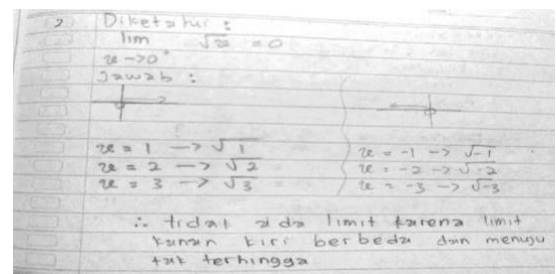 2 Diketahui :
lim √x = 0
x->0⁺
Jawab :
x = 1 -> √1
x = 2 -> √2
x = 3 -> √3
x = -1 -> √-1
x = -2 -> √-2
x = -3 -> √-3
∴ tidak ada limit karena limit
kanan kiri berbeda dan menuju
tak terhingga